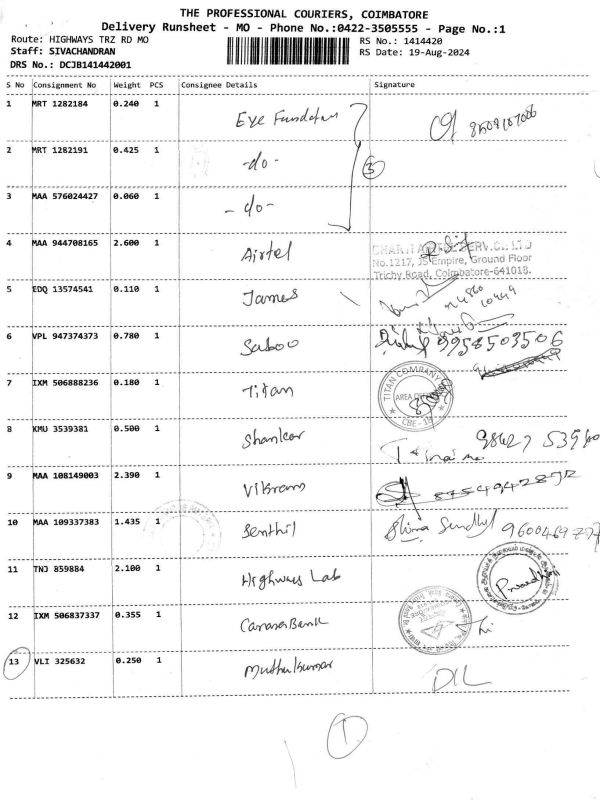 THE PROFESSIONAL COURIERS, COIMBATORE
Delivery Runsheet - MO - Phone No.:0422-3505555 - Page No.:1
Route: HIGHWAYS TRZ RD MO
RS No.: 1414420
Staff: SIVACHANDRAN
RS Date: 19-Aug-2024
DRS No.: DCJB141442001
S No Consignment No Weight PCS Consignee Details Signature
1 MRT 1282184 0.240 1 Eye Fundation 8508107006
2 MRT 1282191 0.425 1 -do- 3
3 MAA 576024427 0.060 1 -do-
4 MAA 944708165 2.600 1 Airtel
No.1217, JS Empire, Ground Floor
Trichy Road, Coimbatore-641018.
5 EDQ 13574541 0.110 1 James
6 VPL 947374373 0.780 1 Saboo 9958503506
7 IXM 506888236 0.180 1 Titan TITAN COMPANY
CBE-18
8 KMU 3539381 0.500 1 Shankar
9 MAA 108149003 2.390 1 Vikram
10 MAA 109337383 1.435 1 Senthil
11 TNJ 859884 2.100 1 Highways Lab
12 IXM 506837337 0.355 1 Canara Bank
13 VLI 325632 0.250 1 Muthukumar DIL
1